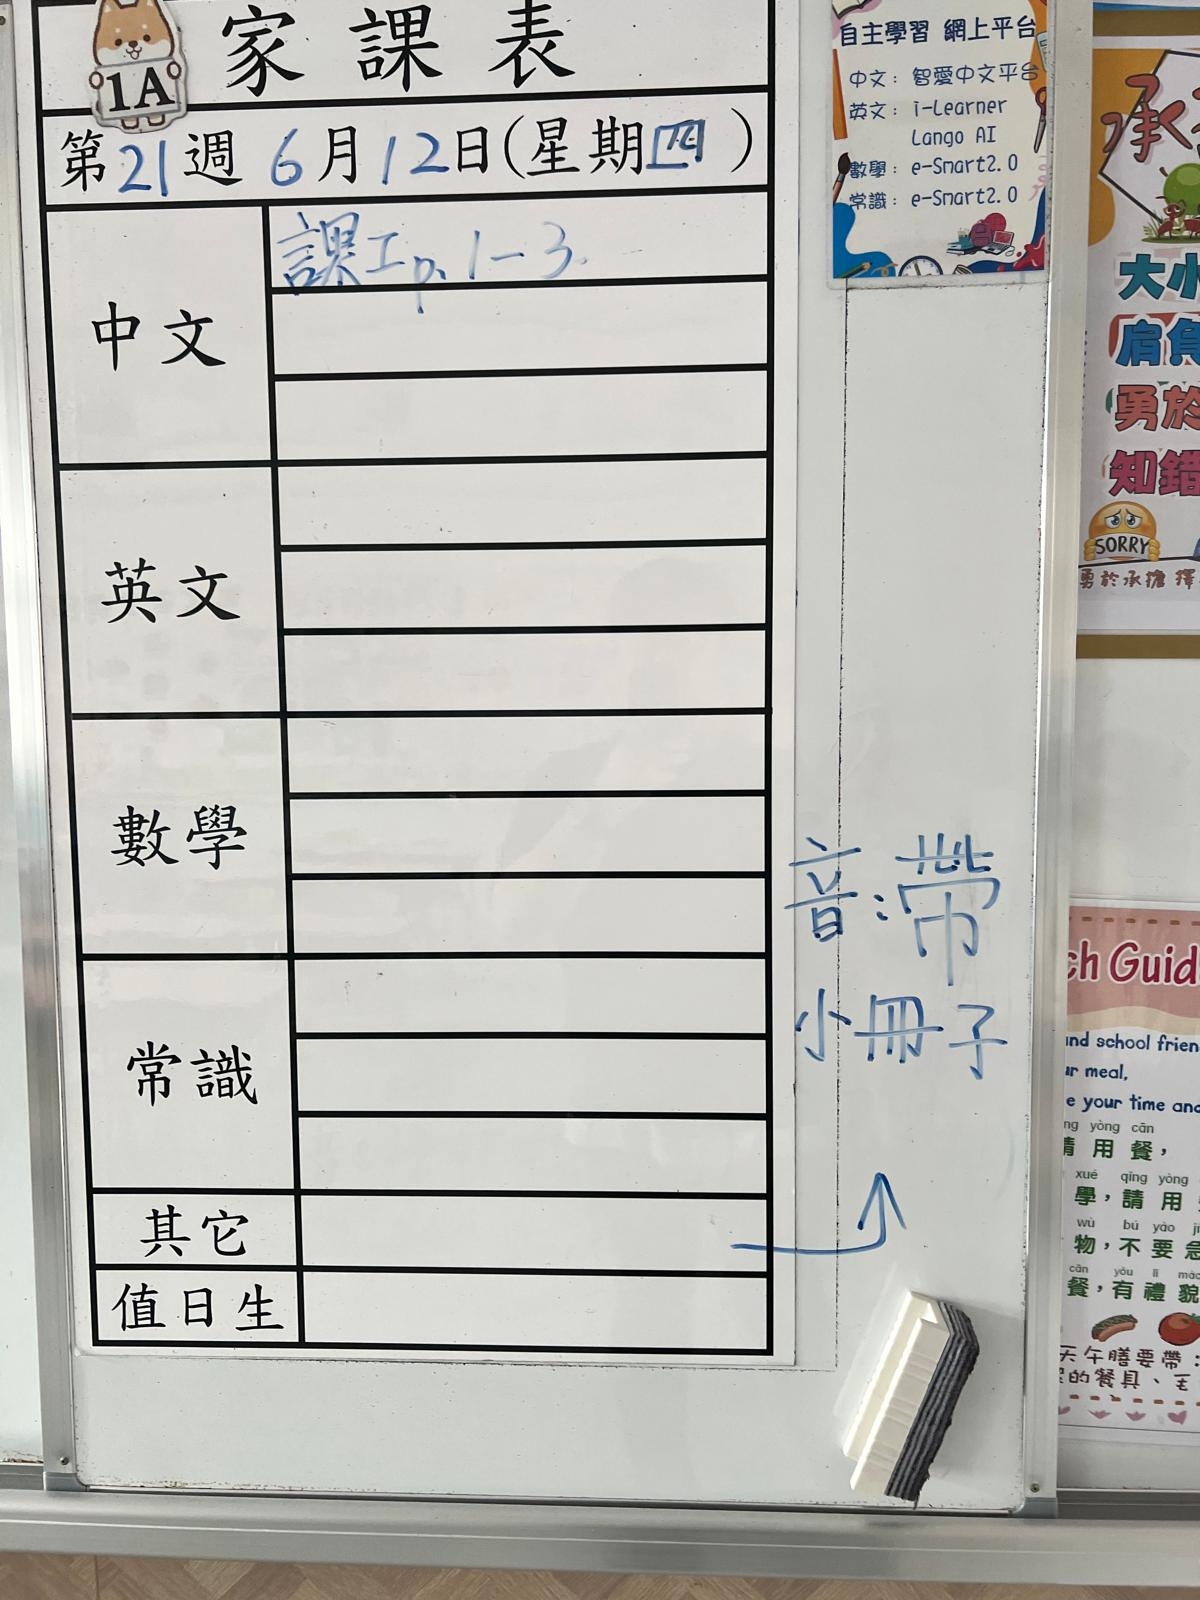 1A
家課表
第21週 6月12日(星期四)
中文
課工p.1-3.
英文
數學
常識
其它
值日生
音:帶
小冊子
自主學習 網上平台
中文:智愛中文平台
英文:i-Learner
Lango AI
數學:e-Smart2.0
常識:e-Smart2.0
承
大小
肩負
勇於
知錯
SORRY
勇於承擔 擇
ch Guid
and school frien
ur meal,
e your time and
ng yòng cān
請用餐,
xué qǐng yòng
學,請用
wù bú yào jí
物,不要急
cān yǒu lǐ mào
餐,有禮貌
天午膳要帶:
的餐具、毛